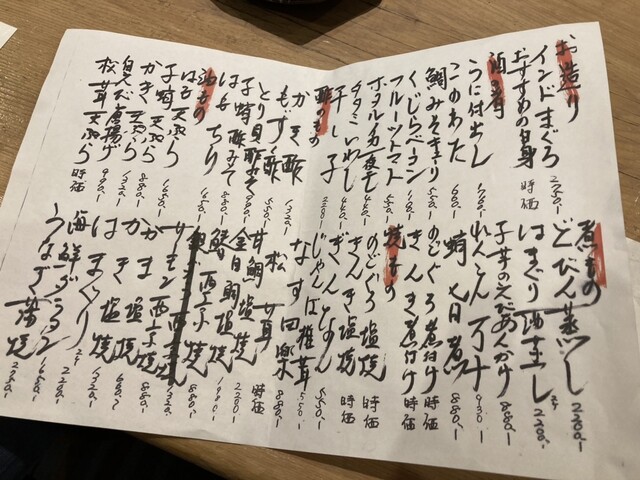 お造り
インドまぐろ 2250-
おすすめの白身 時価
酒の肴
うに付出し
このわた 660-
鯛みそキューリ
くじらベーコン
フルーツトマト
ホタルイカ
タタミいわし 440-
干し子
酢のもの
かき酢 1320-
もずく酢 550-
とり貝酢みそ
子持酢みそ
はもちり
油もの
はも天ぷら 1650-
子持天ぷら 880-
かき天ぷら 1320-
白えび唐揚げ 990-
松茸天ぷら 時価
煮もの
どびん蒸し 2200-
はまぐり酒蒸し 2200-
子芋のえびあんかけ 880-
れんこん万十 930-
蛸七日煮 880-
のどぐろ煮付け 時価
きんき煮付け 時価
焼もの
のどぐろ塩焼 時価
きんき塩焼 時価
ぎんなん 550-
じゃんぼ椎茸 550-
なす田楽 880-
松茸 時価
甘鯛塩焼 2200-
金目鯛塩焼 1980-
西京焼 880-
サーモン西京焼
かま塩焼
かき塩焼 1320-
はまぐり 2200-
海鮮グラタン 1650-
うなぎ蒲焼